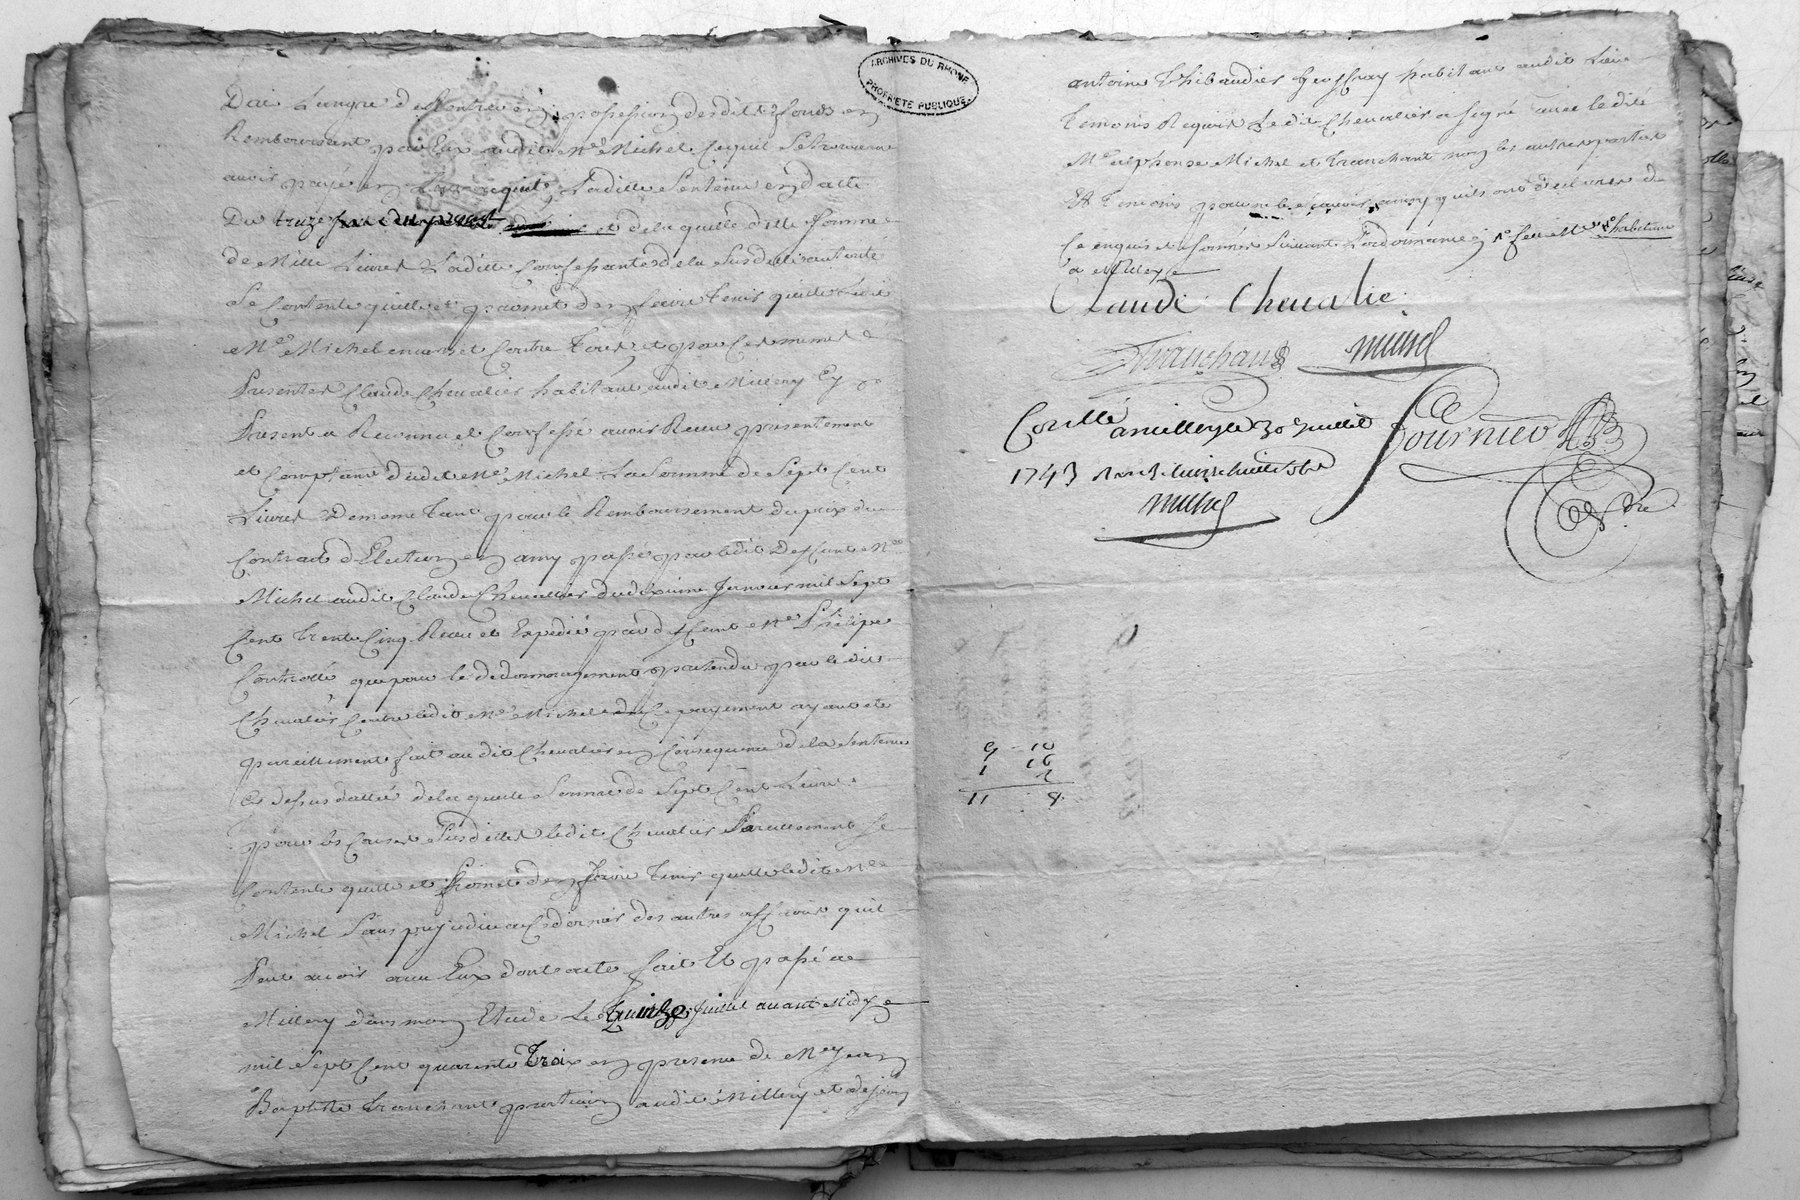 ARCHIVES DU RHONE
PROPRIETE PUBLIQUE
possession desdits fonds en
Remboursant par Eux audit Me Michel Ce quil Se trouvera
avoir payé en laditte Sentence en datte
Du treze et de laquelle ditte Somme
de Mille Livres Laditte Confessante de la Susditte
Se Contente quitte et promet den faire tenir quitte Ledit
Me Michel envers et Contre tous et par Ces mesmes
Presentes Claude Chevalier habitant audit Millery Cy
Present a Reconnu et Confessé avoir Receu presentement
et Comptant dudit Me Michel La Somme de Sept Cent
Livres pour le Remboursement du prix du
Contrat d'Election en amy passé par ledit Deffunt Me
Michel audit Claude Chevallier du dixieme Janvier mil Sept
Cent trente Cinq Receu et Expedié par deffunt Me Philipe
Controllé que pour le dedomagement pretendu par ledit
Chevalier Contre ledit Me Michel Ce payement ayant eté
pareillement fait audit Chevalier en Consequence de la Sentence
Cy dessus dattée de laquelle Somme de Sept Cent Livres
pour les Causes Susdittes ledit Chevalier Pareillement Se
Contente quitte et Promet den faire tenir quitte ledit Me
Michel Sans prejudice a Ce dernier des autres affaires quil
Peut avoir avec Eux dont acte fait Et passé a
Millery dans mon Etude Le Quinze Juillet avant Midy
mil Sept Cent quarente Trois en presence de Me Jean
Baptiste Tranchant praticien audit Millery et de Jean
antoine Thibaudier habitant audit Lieu
temoins Requis Ledit Chevalier a signé avec ledit
Me alphonse Michel et Tranchant non les autres parties
Et temoins pour ne le sçavoir ainsy quils ont declaré de
Ce enquis et sommés Suivant L'ordonnance habitant
a Millery
Claude Chevalie
Tranchant Michel
Conllé a millery le 30e juillet
1743 Reçu
Michel
Fournier
9 - 10
1 16
2
11 8